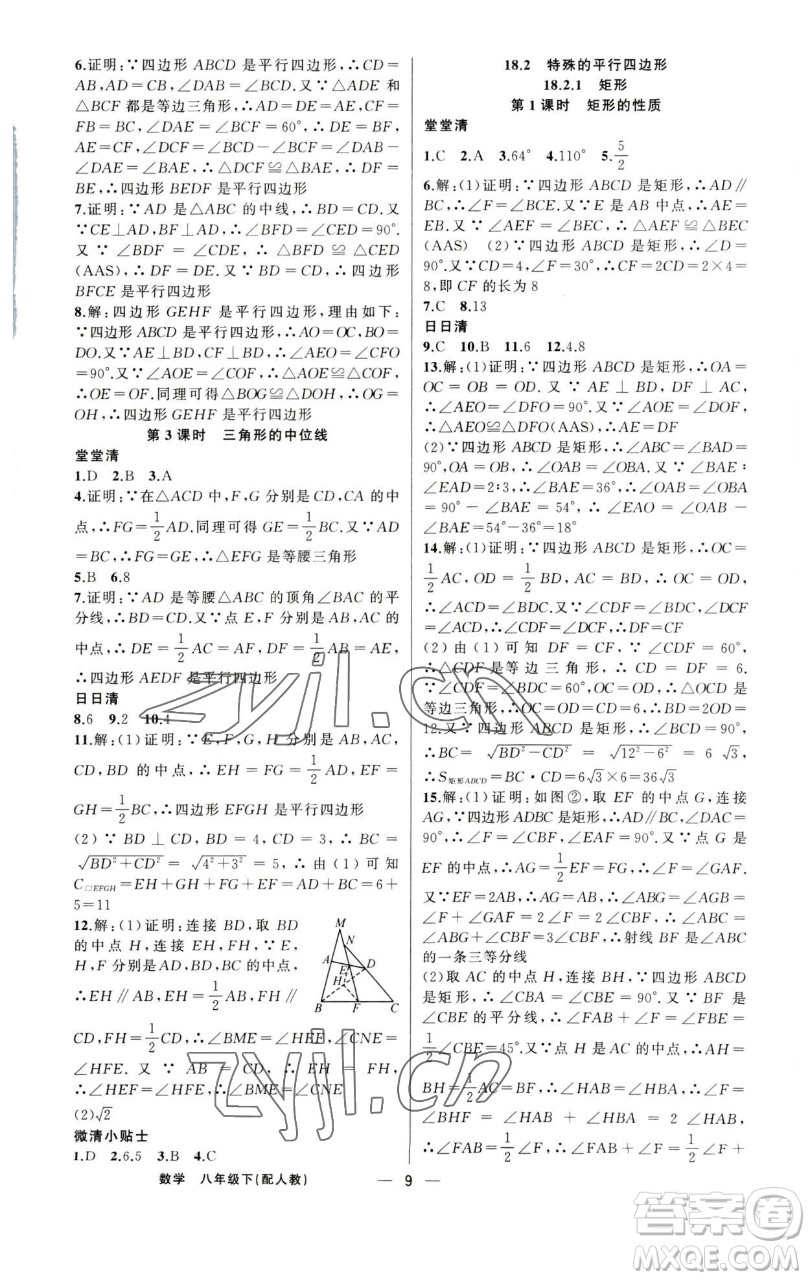 6.证明:∵四边形 ABCD 是平行四边形,∴CD=
AB,AD=CB,∠DAB=∠BCD.又∵△ADE 和
△BCF 都是等边三角形,∴AD=DE=AE,CF=
FB=BC,∠DAE=∠BCF=60°,∴DE=BF,
AE=CF,∠DCF=∠BCD-∠BCF,∠BAE=
∠DAB-∠DAE,∴△DCF≌△BAE,∴DF=
BE,∴四边形 BEDF 是平行四边形
7.证明:∵AD 是△ABC 的中线,∴BD=CD.又
∵CE⊥AD,BF⊥AD,∴∠BFD=∠CED=90°.
又∵∠BDF=∠CDE,∴△BFD≌△CED
(AAS),∴DF=DE.又∵BD=CD,∴四边形
BFCE 是平行四边形
8.解:四边形 GEHF 是平行四边形,理由如下:
∵四边形 ABCD 是平行四边形,∴AO=OC,BO=
DO.又∵AE⊥BD,CF⊥BD,∴∠AEO=∠CFO
=90°.又∵∠AOE=∠COF,∴△AOE≌△COF,∴
OE=OF.同理可得△BOG≌△DOH,∴OG=
OH,∴四边形 GEHF 是平行四边形
第 3 课时 三角形的中位线
堂堂清
1.D 2.B 3.A
4.证明:∵在△ACD 中,F,G 分别是 CD,CA 的中
点,∴FG=1/2AD.同理可得 GE=1/2BC.又∵AD
=BC,∴FG=GE,∴△EFG 是等腰三角形
5.B 6.8
7.证明:∵AD 是等腰△ABC 的顶角∠BAC 的平
分线,∴BD=CD.又∵点 E,F 分别是 AB,AC 的
中点,∴DE=1/2AC=AF,DF=1/2AB=AE,
∴四边形 AEDF 是平行四边形
日日清
8.6 9.2 10.4
11.解:(1)证明:∵E,F,G,H 分别是 AB,AC,
CD,BD 的中点,∴EH=FG=1/2AD,EF=
GH=1/2BC,∴四边形 EFGH 是平行四边形
(2)∵BD⊥CD,BD=4,CD=3,∴BC=
√(BD²+CD²)=√(4²+3²)=5,∴由(1)可知
C▱EFGH=EH+GH+FG+EF=AD+BC=6+
5=11
12.解:(1)证明:连接 BD,取 BD
的中点 H,连接 EH,FH,∵E,
H,F 分别是 AD,BD,BC 的中点,
∴EH∥AB,EH=1/2AB,FH∥
CD,FH=1/2CD,∴∠BME=∠HEF,∠CNE=
∠HFE.又∵AB=CD,∴EH=FH,
∴∠HEF=∠HFE,∴∠BME=∠CNE
(2)√2
M
N
A
E
D
H
B
F
C
微清小贴士
1.D 2.6.5 3.B 4.C
18.2 特殊的平行四边形
18.2.1 矩形
第 1 课时 矩形的性质
堂堂清
1.C 2.A 3.64° 4.110° 5.5/2
6.解:(1)证明:∵四边形 ABCD 是矩形,∴AD∥
BC,∴∠F=∠BCE.又∵E 是 AB 中点,∴AE=
EB.又∵∠AEF=∠BEC,∴△AEF≌△BEC
(AAS) (2)∵四边形 ABCD 是矩形,∴∠D=
90°.又∵CD=4,∠F=30°,∴CF=2CD=2×4=
8,即 CF 的长为 8
7.C 8.13
日日清
9.C 10.B 11.6 12.4.8
13.解:(1)证明:∵四边形 ABCD 是矩形,∴OA=
OC=OB=OD.又∵AE⊥BD,DF⊥AC,
∴∠AEO=∠DFO=90°.又∵∠AOE=∠DOF,
∴△AEO≌△DFO(AAS),∴AE=DF
(2)∵四边形 ABCD 是矩形,∴∠ABC=∠BAD=
90°,OA=OB,∴∠OAB=∠OBA.又∵∠BAE∶
∠EAD=2∶3,∴∠BAE=36°,∴∠OAB=∠OBA
=90°-∠BAE=54°,∴∠EAO=∠OAB-
∠BAE=54°-36°=18°
14.解:(1)证明:∵四边形 ABCD 是矩形,∴OC=
1/2AC,OD=1/2BD,AC=BD,∴OC=OD,
∴∠ACD=∠BDC.又∵∠CDF=∠BDC,∠DCF
=∠ACD,∴∠CDF=∠DCF,∴DF=CF
(2)由(1)可知 DF=CF,∵∠CDF=60°,
∴△CDF 是等边三角形,∴CD=DF=6.
∵∠CDF=∠BDC=60°,OD=OC,∴△OCD 是
等边三角形,∴OC=OD=CD=6,∴BD=2OD=
12.又∵四边形 ABCD 是矩形,∴∠BCD=90°,
∴BC=√(BD²-CD²)=√(12²-6²)=6√3,
∴S矩形ABCD=BC·CD=6√3×6=36√3
15.解:(1)证明:如图②,取 EF 的中点 G,连接
AG,∵四边形 ADBC 是矩形,∴AD∥BC,∠DAC=
90°,∴∠F=∠CBF,∠EAF=90°.又∵点 G 是
EF 的中点,∴AG=1/2EF=FG,∴∠F=∠GAF.又
∵EF=2AB,∴AG=AB,∴∠ABG=∠AGB=
∠F+∠GAF=2∠F=2∠CBF,∴∠ABC=
∠ABG+∠CBF=3∠CBF,∴射线 BF 是∠ABC
的一条三等分线
(2)取 AC 的中点 H,连接 BH,∵四边形 ABCD
是矩形,∴∠ABC=∠CBE=90°.又∵BF 是
∠CBE 的平分线,∴∠FAB+∠F=∠FBE=
1/2∠CBE=45°.又∵BF=1/2AC,∴AH=
BH=1/2AC=BF,∴∠HAB=∠HBA,∠F=
∠BHF=∠HAB+∠HBA=2∠HAB,
∴∠HAB=1/2∠F,∴∠FAB+∠F=1/2∠F+
数学 八年级下(配人教)
— 9 —
zyjl.cn
zyjl.cn
答案圈
MXQE.COM